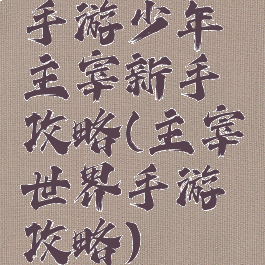 手游少年
主宰新手
攻略(主宰
世界手游
攻略)